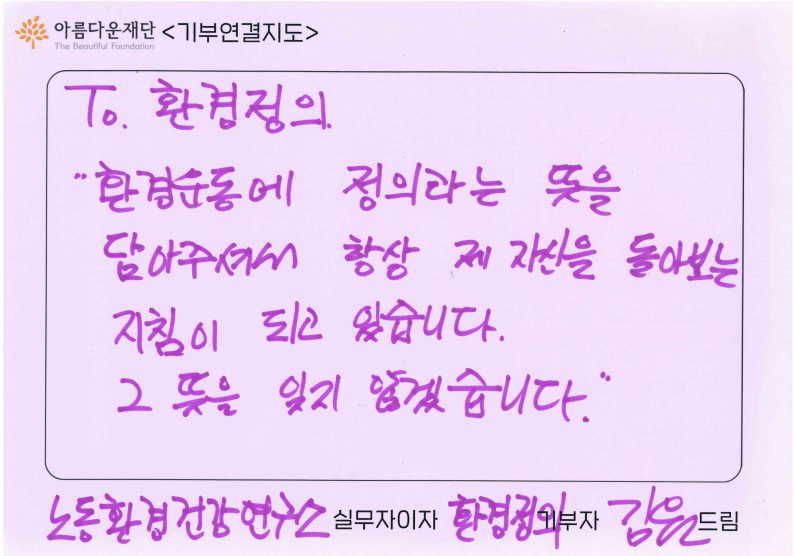 아름다운재단 <기부연결지도>
The Beautiful Foundation
To. 환경정의
"환경운동에 정의라는 뜻을
담아주셔서 항상 제 자신을 돌아보는
지침이 되고 있습니다.
그 뜻을 잊지 않겠습니다."
노동환경건강연구소 실무자이자 환경정의 기부자 김원 드림